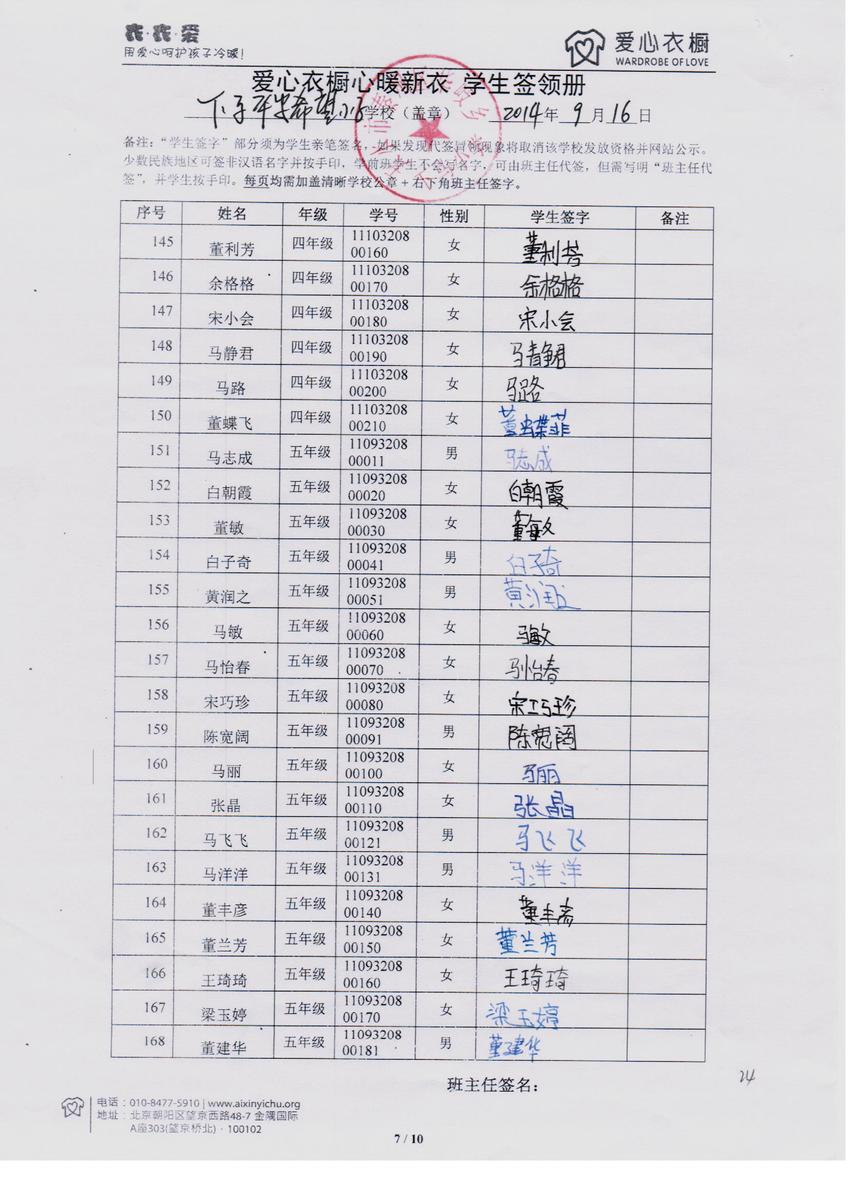 衣·衣·爱
用爱心呵护孩子冷暖!
爱心衣橱
WARDROBE OF LOVE
爱心衣橱心暖新衣 学生签领册
希望小学学校（盖章） 2014年9月16日
备注：“学生签字”部分须为学生亲笔签名，如果发现代签冒领现象将取消该学校发放资格并网站公示。
少数民族地区可签非汉语名字并按手印，学前班学生不会写名字，可由班主任代签，但需写明“班主任代
签”，并学生按手印。每页均需加盖清晰学校公章+右下角班主任签字。
序号 姓名 年级 学号 性别 学生签字 备注
145 董利芳 四年级 11103208 00160 女 董利芳
146 余格格 四年级 11103208 00170 女 余格格
147 宋小会 四年级 11103208 00180 女 宋小会
148 马静君 四年级 11103208 00190 女 马静君
149 马路 四年级 11103208 00200 女 马路
150 董蝶飞 四年级 11103208 00210 女 董蝶菲
151 马志成 五年级 11093208 00011 男 马志成
152 白朝霞 五年级 11093208 00020 女 白朝霞
153 董敏 五年级 11093208 00030 女 董敏
154 白子奇 五年级 11093208 00041 男 白子奇
155 黄润之 五年级 11093208 00051 男 黄润之
156 马敏 五年级 11093208 00060 女 马敏
157 马怡春 五年级 11093208 00070 女 马怡春
158 宋巧珍 五年级 11093208 00080 女 宋巧珍
159 陈宽阔 五年级 11093208 00091 男 陈宽阔
160 马丽 五年级 11093208 00100 女 马丽
161 张晶 五年级 11093208 00110 女 张晶
162 马飞飞 五年级 11093208 00121 男 马飞飞
163 马洋洋 五年级 11093208 00131 男 马洋洋
164 董丰彦 五年级 11093208 00140 女 董丰彦
165 董兰芳 五年级 11093208 00150 女 董兰芳
166 王琦琦 五年级 11093208 00160 女 王琦琦
167 梁玉婷 五年级 11093208 00170 女 梁玉婷
168 董建华 五年级 11093208 00181 男 董建华
班主任签名：
24
电话：010-8477-5910 | www.aixinyichu.org
地址：北京朝阳区望京西路48-7 金隅国际
A座303(望京桥北)·100102
7 / 10